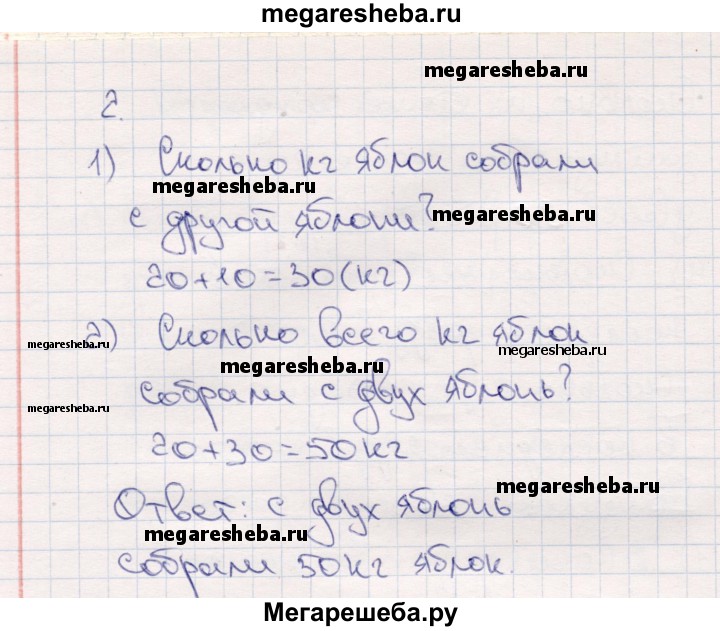 megaresheba.ru
megaresheba.ru
2.
1) Сколько кг яблок собрали
megaresheba.ru
с другой яблони?
megaresheba.ru
20+10=30(кг)
2) Сколько всего кг яблок
megaresheba.ru
megaresheba.ru
megaresheba.ru
собрали с двух яблонь?
megaresheba.ru
20+30=50кг
megaresheba.ru
Ответ: с двух яблонь
megaresheba.ru
собрали 50кг яблок.
Мегарешеба.ру